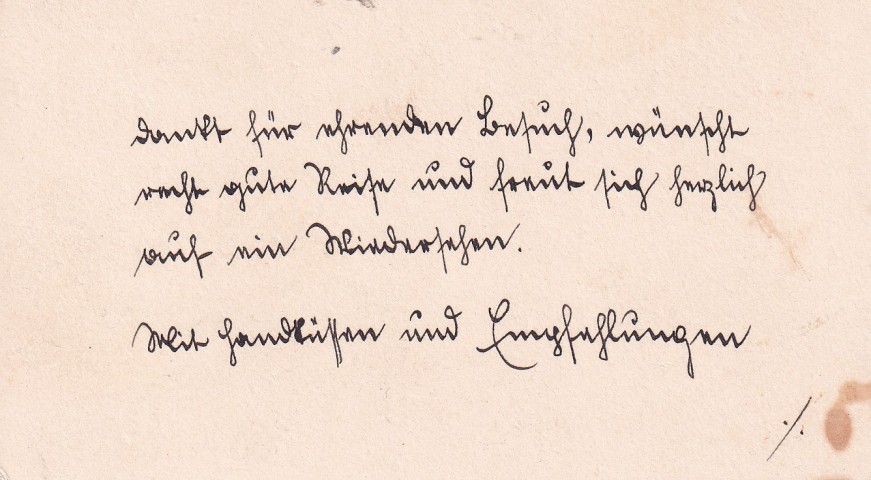 dankt für ehrenden Besuch, wünscht
recht gute Reise und freut sich herzlich
auf ein Wiedersehen.
Mit Handküssen und Empfehlungen
./.